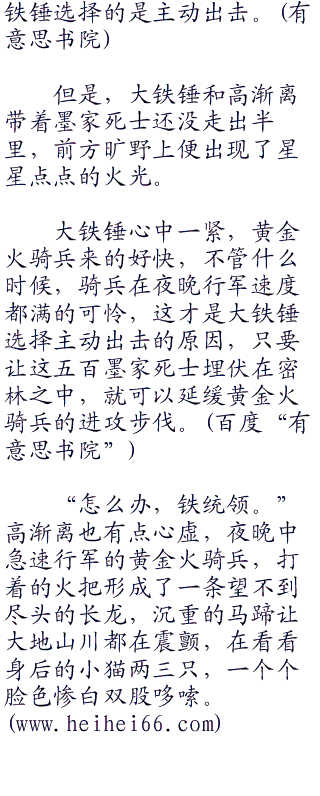 铁锤选择的是主动出击。(有
意思书院)
但是，大铁锤和高渐离
带着墨家死士还没走出半
里，前方旷野上便出现了星
星点点的火光。
大铁锤心中一紧，黄金
火骑兵来的好快，不管什么
时候，骑兵在夜晚行军速度
都满的可怜，这才是大铁锤
选择主动出击的原因，只要
让这五百墨家死士埋伏在密
林之中，就可以延缓黄金火
骑兵的进攻步伐。(百度“有
意思书院”)
“怎么办，铁统领。”
高渐离也有点心虚，夜晚中
急速行军的黄金火骑兵，打
着的火把形成了一条望不到
尽头的长龙，沉重的马蹄让
大地山川都在震颤，在看看
身后的小猫两三只，一个个
脸色惨白双股哆嗦。
(www.heihei66.com)